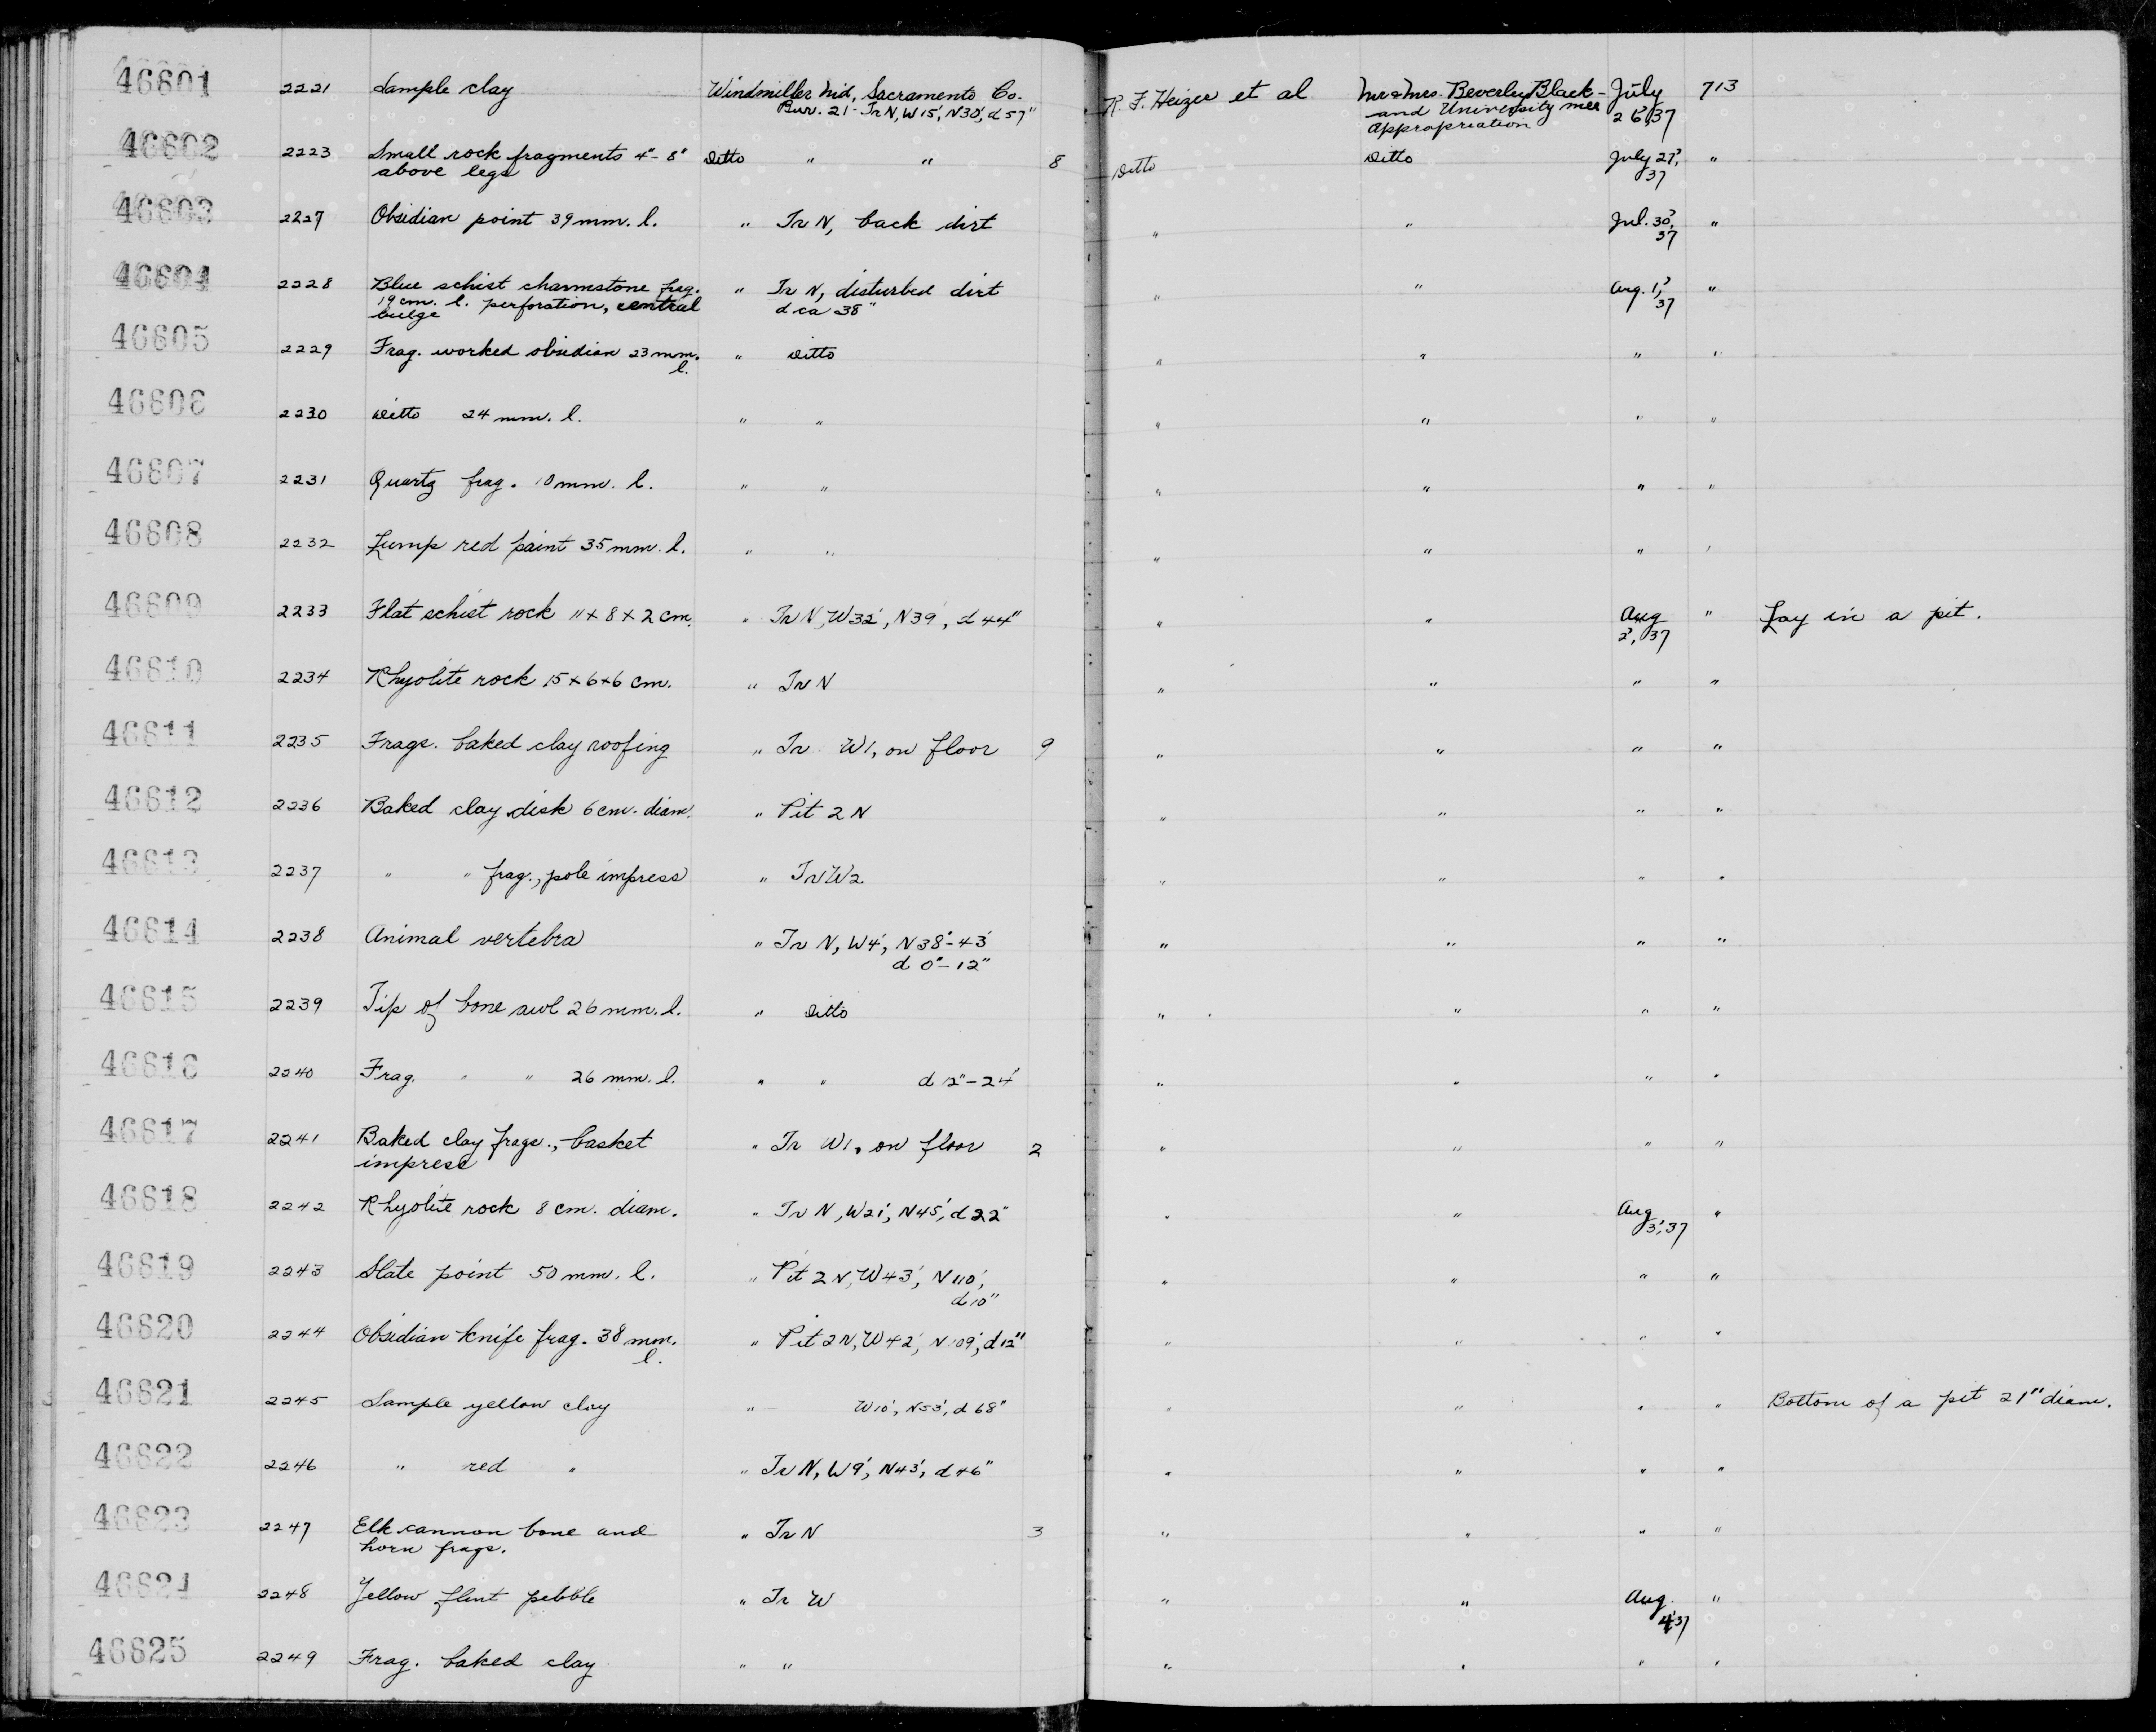 46601 2221 Sample clay Windmiller Md, Sacramento Co. R. F. Heizer et al Mr & Mrs. Beverley Black- July 713
Bur. 21 - Tr N, W15', N30', d57" and University mer 26, '37
Appropriation
46602 2223 Small rock fragments 4"-8" Ditto " " 8 Ditto Ditto July 27, "
above legs '37
46603 2227 Obsidian point 39 mm. l. " Tr N, back dirt " " Jul. 30, "
'37
46604 2228 Blue schist charmstone frag. " Tr N, disturbed dirt " " Aug. 1, "
19 cm. l. perforation, central d ca 38" '37
bulge
46605 2229 Frag. worked obsidian 23 mm. " Ditto " " " "
l.
46606 2230 Ditto 24 mm. l. " " " " " "
46607 2231 Quartz frag. 10 mm. l. " " " " " "
46608 2232 Lump red paint 35 mm. l. " " " " " "
46609 2233 Flat schist rock 11 x 8 x 2 cm. " Tr N, W32', N39', d 44" " " Aug " Lay in a pit.
2, '37
46610 2234 Rhyolite rock 15 x 6 x 6 cm. " Tr N " " " "
46611 2235 Frags. baked clay roofing " Tr W1, on floor 9 " " " "
46612 2236 Baked clay disk 6 cm. diam. " Pit 2 N " " " "
46613 2237 " " frag., pole impress " Tr W2 " " " "
46614 2238 Animal vertebra " Tr N, W4', N38'-43' " " " "
d 0"-12"
46615 2239 Tip of bone awl 26 mm. l. " Ditto " " " "
46616 2240 Frag. " " 26 mm. l. " " d 12"-24" " " " "
46617 2241 Baked clay frags., basket " Tr W1, on floor 2 " " " "
impress
46618 2242 Rhyolite rock 8 cm. diam. " Tr N, W21', N45', d22" " " Aug "
3, '37
46619 2243 Slate point 50 mm. l. " Pit 2 N, W43', N110', " " " "
d10"
46620 2244 Obsidian knife frag. 38 mm. " Pit 2N, W42', N109', d12" " " " "
l.
46621 2245 Sample yellow clay " W10', N53', d 68" " " " " Bottom of a pit 21" diam.
46622 2246 " red " " Tr N, W9', N43', d46" " " " "
46623 2247 Elk cannon bone and " Tr N 3 " " " "
horn frags.
46624 2248 Yellow flint pebble " Tr W " " Aug. "
4, '37
46625 2249 Frag. baked clay " " " " " "